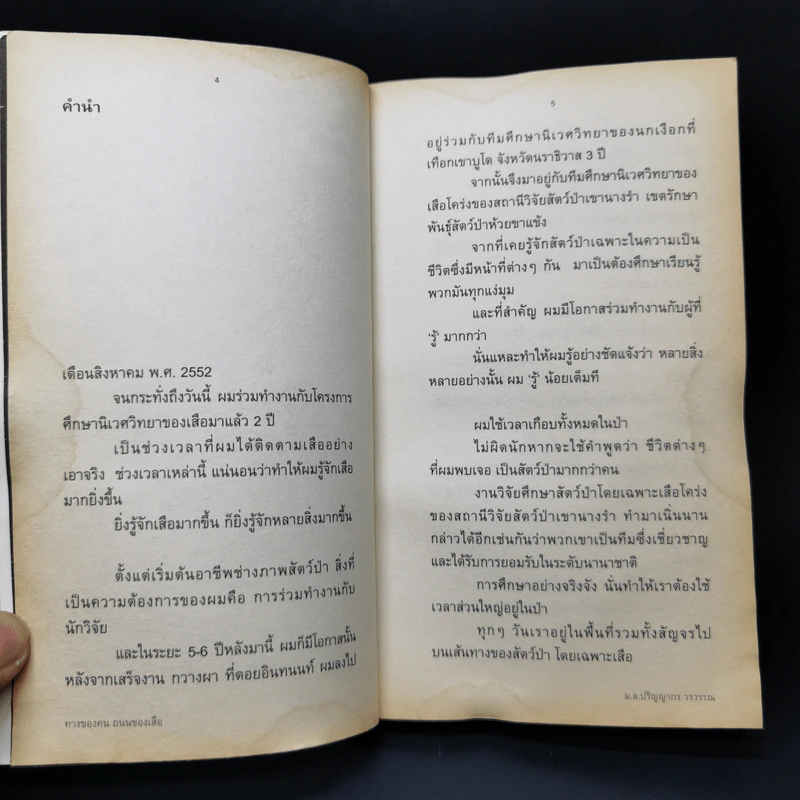 4
คำนำ
เดือนสิงหาคม พ.ศ. 2552
จนกระทั่งถึงวันนี้ ผมร่วมทำงานกับโครงการ
ศึกษานิเวศวิทยาของเสือมาแล้ว 2 ปี
เป็นช่วงเวลาที่ผมได้ติดตามเสืออย่าง
เอาจริง ช่วงเวลาเหล่านี้ แน่นอนว่าทำให้ผมรู้จักเสือ
มากยิ่งขึ้น
ยิ่งรู้จักเสือมากขึ้น ก็ยิ่งรู้จักหลายสิ่งมากขึ้น
ตั้งแต่เริ่มต้นอาชีพช่างภาพสัตว์ป่า สิ่งที่
เป็นความต้องการของผมคือ การร่วมทำงานกับ
นักวิจัย
และในระยะ 5-6 ปีหลังมานี้ ผมก็มีโอกาสนั้น
หลังจากเสร็จงาน กวางผา ที่ดอยอินทนนท์ ผมลงไป
ทางของคน ถนนของเสือ
5
อยู่ร่วมกับทีมศึกษานิเวศวิทยาของนกเงือกที่
เทือกเขาบูโด จังหวัดนราธิวาส 3 ปี
จากนั้นจึงมาอยู่กับทีมศึกษานิเวศวิทยาของ
เสือโคร่งของสถานีวิจัยสัตว์ป่าเขานางรำ เขตรักษา
พันธุ์สัตว์ป่าห้วยขาแข้ง
จากที่เคยรู้จักสัตว์ป่าเฉพาะในความเป็น
ชีวิตซึ่งมีหน้าที่ต่างๆ กัน มาเป็นต้องศึกษาเรียนรู้
พวกมันทุกแง่มุม
และที่สำคัญ ผมมีโอกาสร่วมทำงานกับผู้ที่
'รู้' มากกว่า
นั่นแหละทำให้ผมรู้อย่างชัดแจ้งว่า หลายสิ่ง
หลายอย่างนั้น ผม 'รู้' น้อยเต็มที
ผมใช้เวลาเกือบทั้งหมดในป่า
ไม่ผิดนักหากจะใช้คำพูดว่า ชีวิตต่างๆ
ที่ผมพบเจอ เป็นสัตว์ป่ามากกว่าคน
งานวิจัยศึกษาสัตว์ป่าโดยเฉพาะเสือโคร่ง
ของสถานีวิจัยสัตว์ป่าเขานางรำ ทำมาเนิ่นนาน
กล่าวได้อีกเช่นกันว่าพวกเขาเป็นทีมซึ่งเชี่ยวชาญ
และได้รับการยอมรับในระดับนานาชาติ
การศึกษาอย่างจริงจัง นั่นทำให้เราต้องใช้
เวลาส่วนใหญ่อยู่ในป่า
ทุกๆ วันเราอยู่ในพื้นที่รวมทั้งสัญจรไป
บนเส้นทางของสัตว์ป่า โดยเฉพาะเสือ
ม.ล.ปริญญากร วรวรรณ